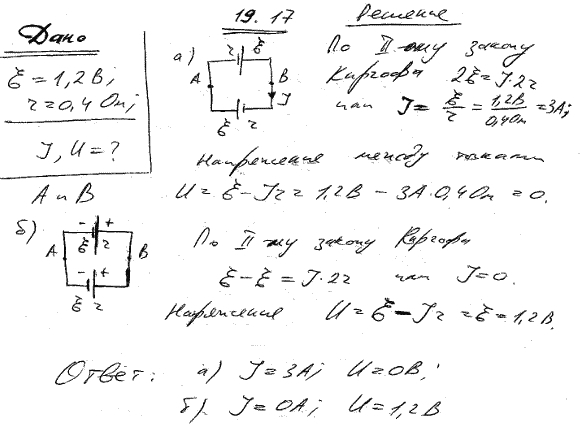 19.17
Дано
ℰ = 1,2 В;
r = 0,4 Ом;
J, U = ?
Решение
а)
r ℰ
A B
J
ℰ r
По II-ому закону
Киргофа 2ℰ = J·2r
или J = ℰ/r = 1,2В/0,4Ом = 3А;
Напряжение между точками
A и B U = ℰ - Jr = 1,2В - 3А·0,4Ом = 0.
б)
- +
ℰ r
A B
- +
ℰ r
По II-му закону Киргофа
ℰ - ℰ = J·2r или J = 0.
Напряжение U = ℰ - Jr = ℰ = 1,2В.
Ответ: а) J = 3А; U = 0В;
б). J = 0А; U = 1,2В